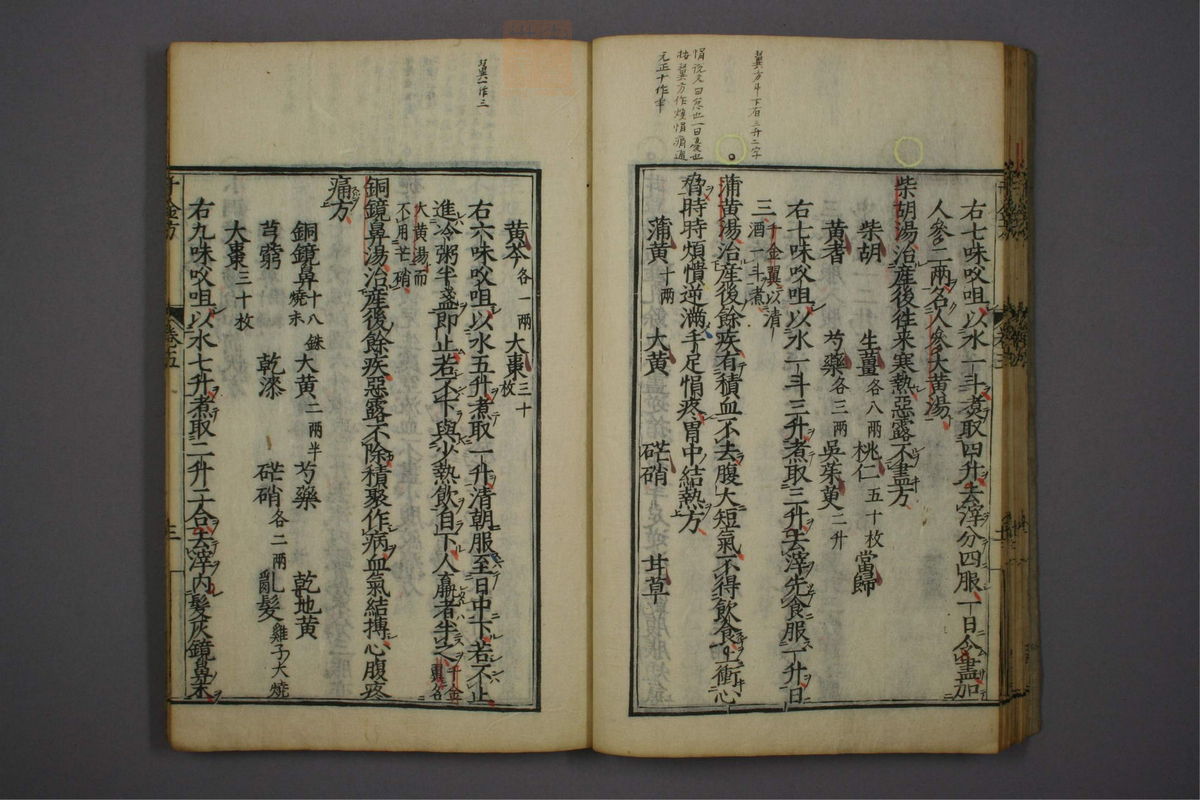 翼方斗下有三升二字
悁說文曰忿也一曰憂也
按翼方作煩悁滿通
元正十作事
右七味㕮咀以水一斗煮取四升去滓分四服一日令盡加
人參二兩名人參大黃湯
柴胡湯治産後往来寒熱惡露不盡方
柴胡 生薑各八兩 桃仁五十枚 當歸
黃耆 芍藥各三兩 吳茱萸二升
右七味㕮咀以水一斗三升煮取三升去滓先食服一升日
三千金翼以清酒一斗煮
蒲黃湯治産後餘疾有積血不去腹大短氣不得飲食上衝心
脅時時煩憒逆滿手足悁疼胃中結熱方
蒲黃十兩 大黃 芒硝 甘草
翼一作三
黃芩各一兩 大棗三十枚
右六味㕮咀以水五升煮取一升清朝服至日中下若不止
進冷粥半盞即止若不下與少熱飲自下人羸者半之千金翼名
大黃湯而不用芒硝
銅鏡鼻湯治産後餘疾惡露不除積聚作病血氣結搏心腹疼
痛方
銅鏡鼻十八銖燒末 大黃二兩半 芍藥 乾地黃
芎藭 乾漆 芒硝各二兩 亂髮雞子大燒
大棗三十枚
右九味㕮咀以水七升煮取二升二合去滓内髮灰鏡鼻末
千金方
卷五
三